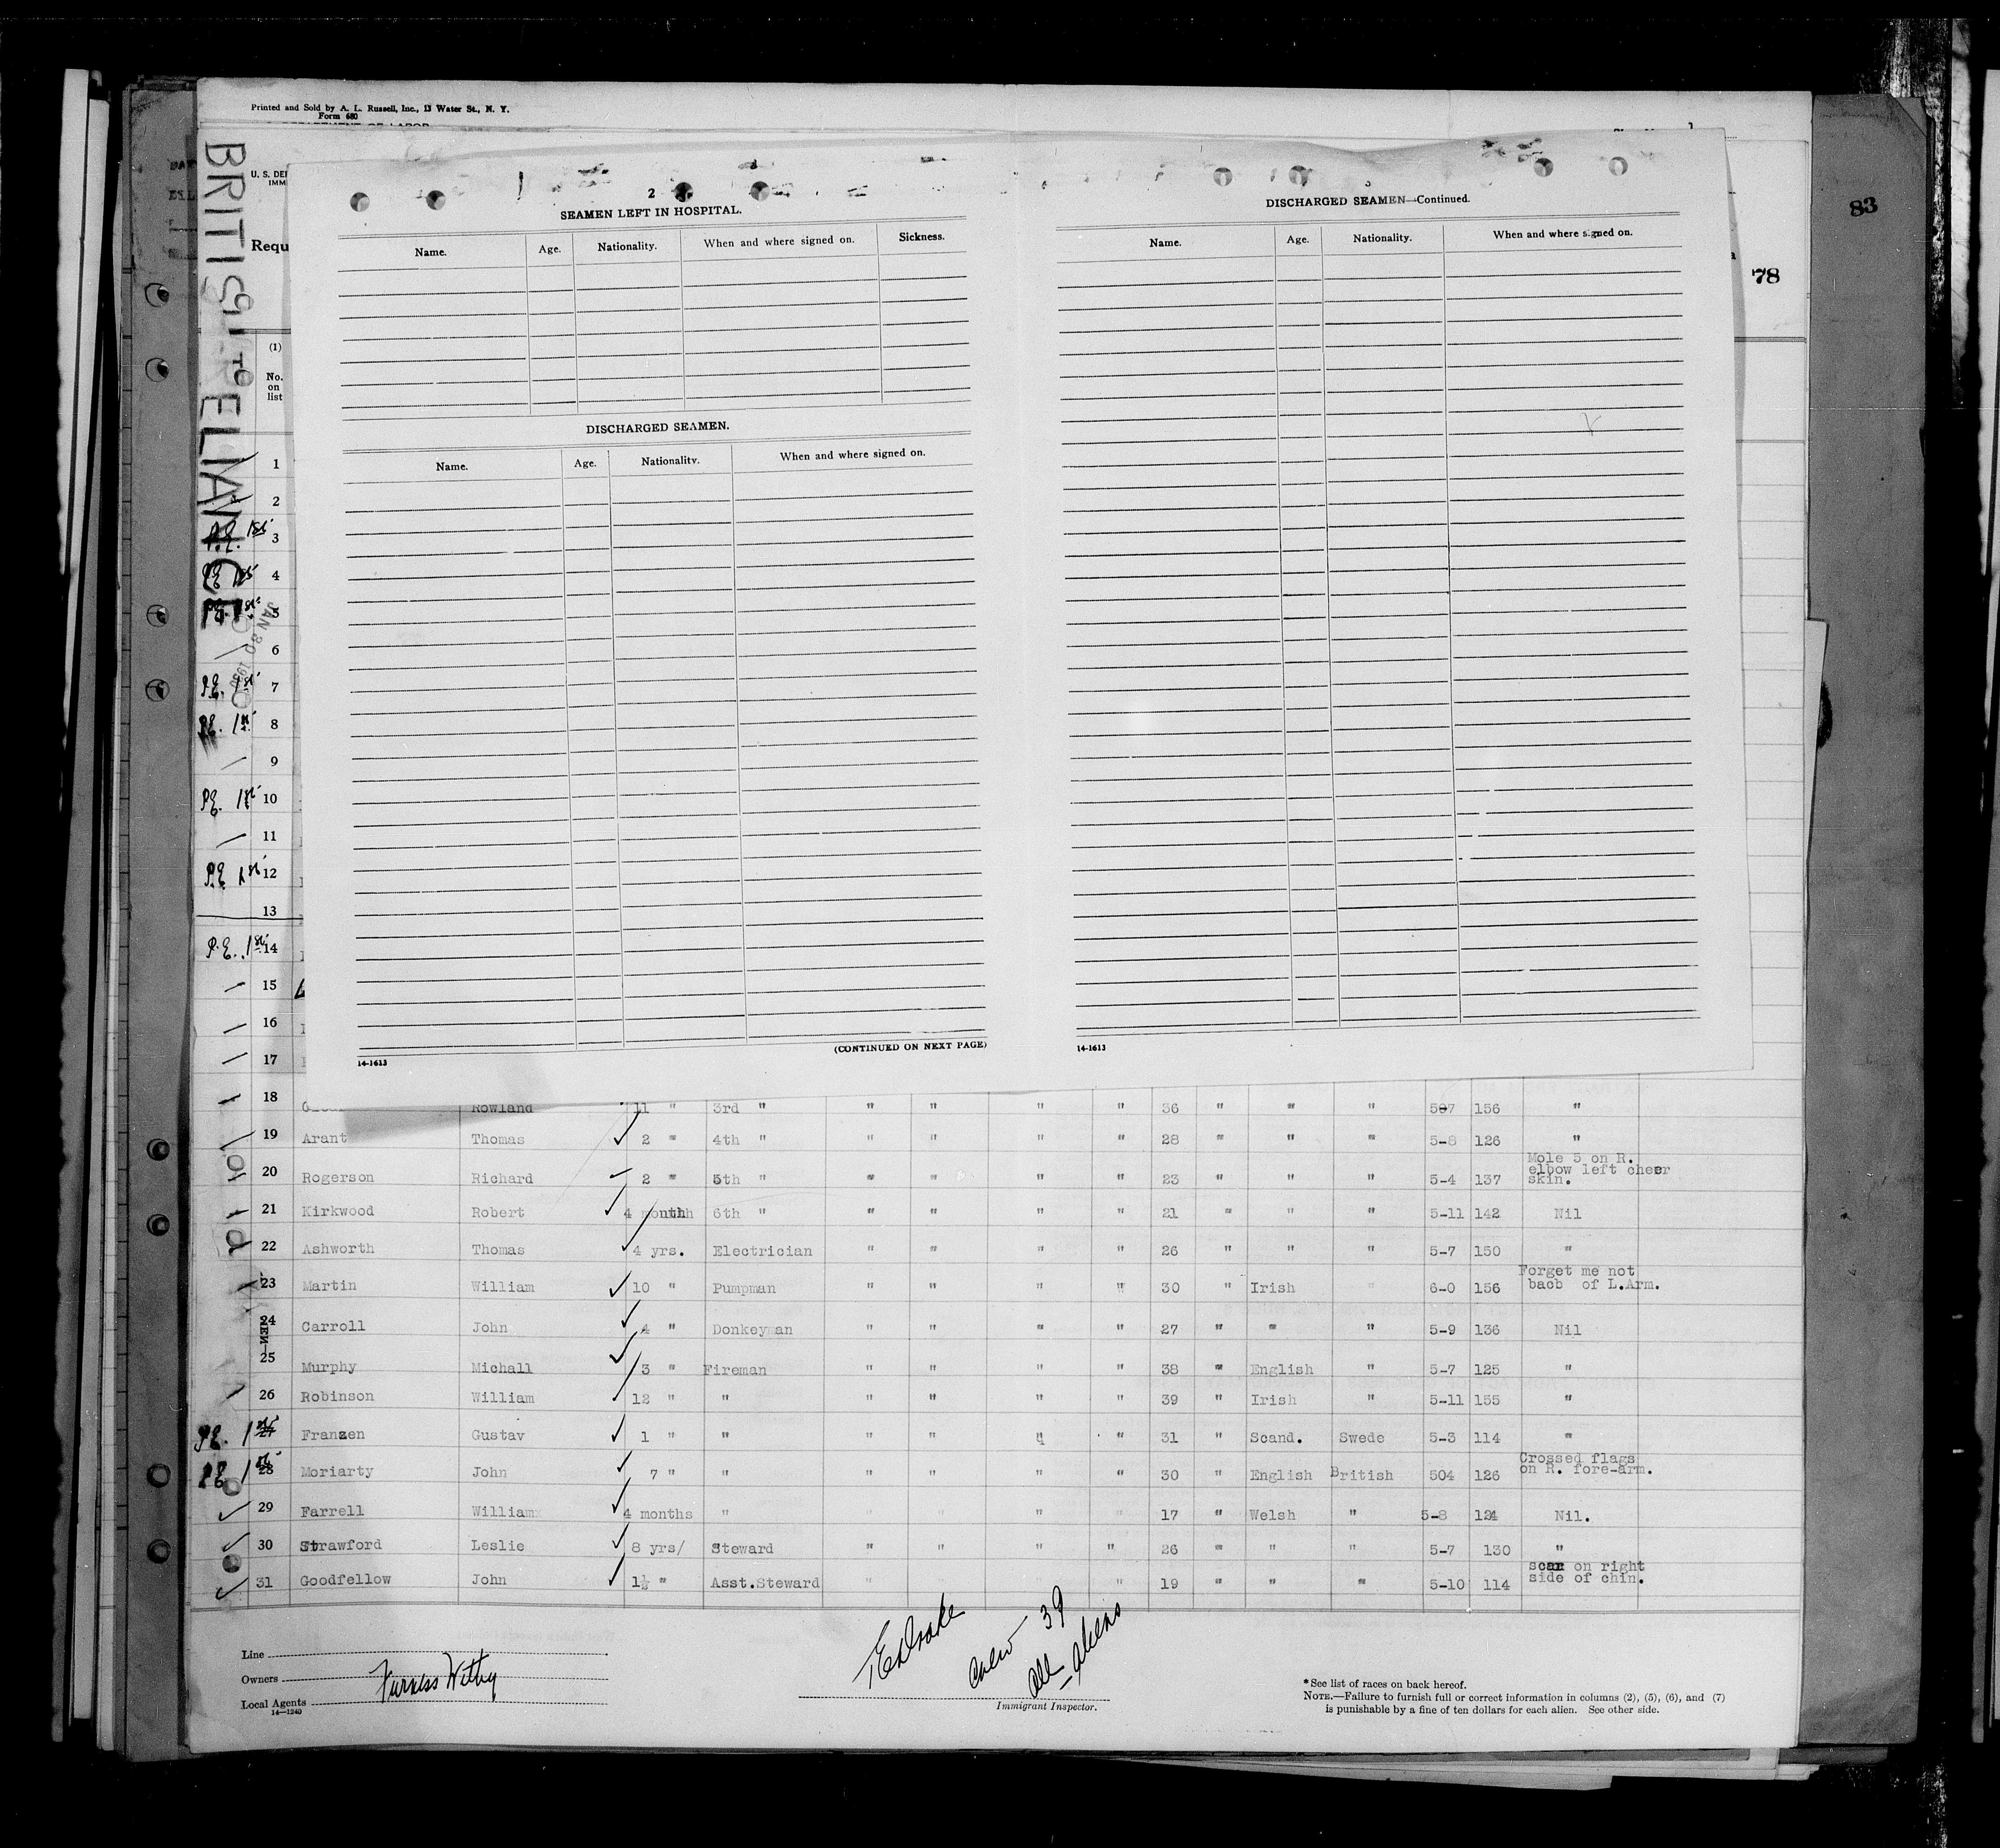 Printed and Sold by A. L. Russell, Inc., 13 Water St., N. Y.
Form 680
83
78
BRITISH RELIANCE
JAN 30 1930
U. S. DE
IMM
Requ
(1)
No.
on
list
2
SEAMEN LEFT IN HOSPITAL.
Name. Age. Nationality. When and where signed on. Sickness.
DISCHARGED SEAMEN.
Name. Age. Nationality. When and where signed on.
(CONTINUED ON NEXT PAGE)
14-1613
3
DISCHARGED SEAMEN—Continued.
Name. Age. Nationality. When and where signed on.
14-1613
1
2
P.E. 1st 3
P.E. 1st 4
P.E. 1st 5
6
P.E. 1st 7
P.E. 1st 8
9
P.E. 1st 10
11
P.E. 1st 12
13
P.E. 1st 14
15
16
17
18 Rowland 11 " 3rd " " " " " 36 " " " 507 156 "
19 Arant Thomas 2 " 4th " " " " " 28 " " " 5-8 126 "
20 Rogerson Richard 2 " 5th " " " " " 23 " " " 5-4 137 Mole 5 on R. elbow left cheer skin.
21 Kirkwood Robert 4 month 6th " " " " " 21 " " " 5-11 142 Nil
22 Ashworth Thomas 4 yrs. Electrician " " " " 26 " " " 5-7 150 "
23 Martin William 10 " Pumpman " " " " 30 " Irish " 6-0 156 Forget me not bacb of L.Arm.
24 Carroll John 4 " Donkeyman " " " " 27 " " " 5-9 136 Nil
25 Murphy Michall 3 " Fireman " " " " 38 " English " 5-7 125 "
26 Robinson William 12 " " " " " " 39 " Irish " 5-11 155 "
P.E. 1st 27 Franzen Gustav 1 " " " " " " 31 " Scand. Swede 5-3 114 "
P.E. 1st 28 Moriarty John 7 " " " " " " 30 " English British 504 126 Crossed flags on R. fore-arm.
29 Farrell William 4 months " " " " " 17 " Welsh " 5-8 124 Nil.
30 Strawford Leslie 8 yrs/ Steward " " " " 26 " " " 5-7 130 "
31 Goodfellow John 1½ " Asst.Steward " " 19 " " " 5-10 114 scar on right side of chin.
Line
Owners
Local Agents Furness Withy
14—1240
Crew 39
all aliens
Immigrant Inspector.
*See list of races on back hereof.
NOTE.—Failure to furnish full or correct information in columns (2), (5), (6), and (7)
is punishable by a fine of ten dollars for each alien. See other side.